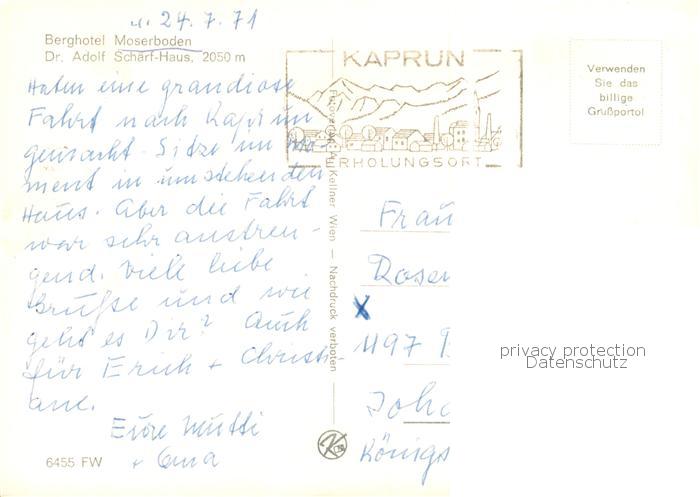 24.7.71
Berghotel Moserboden
Dr. Adolf Schärf-Haus, 2050 m
Haben eine grandiose
Fahrt nach Kaprun
gemacht. Sitze im Mo-
ment in umstehenden
Haus. Aber die Fahrt
war sehr anstren-
gend. Viele liebe
Grüße und wie
geht es Dir? Auch
für Erich + Christi-
ane.
Eure Mutti
+ Oma
6455 FW
KAPRUN
ERHOLUNGSORT
Kellner Wien — Nachdruck verboten
Verwenden
Sie das
billige
Grußporto!
Frau
Roser
X
1197
Joha
Königs
privacy protection
Datenschutz